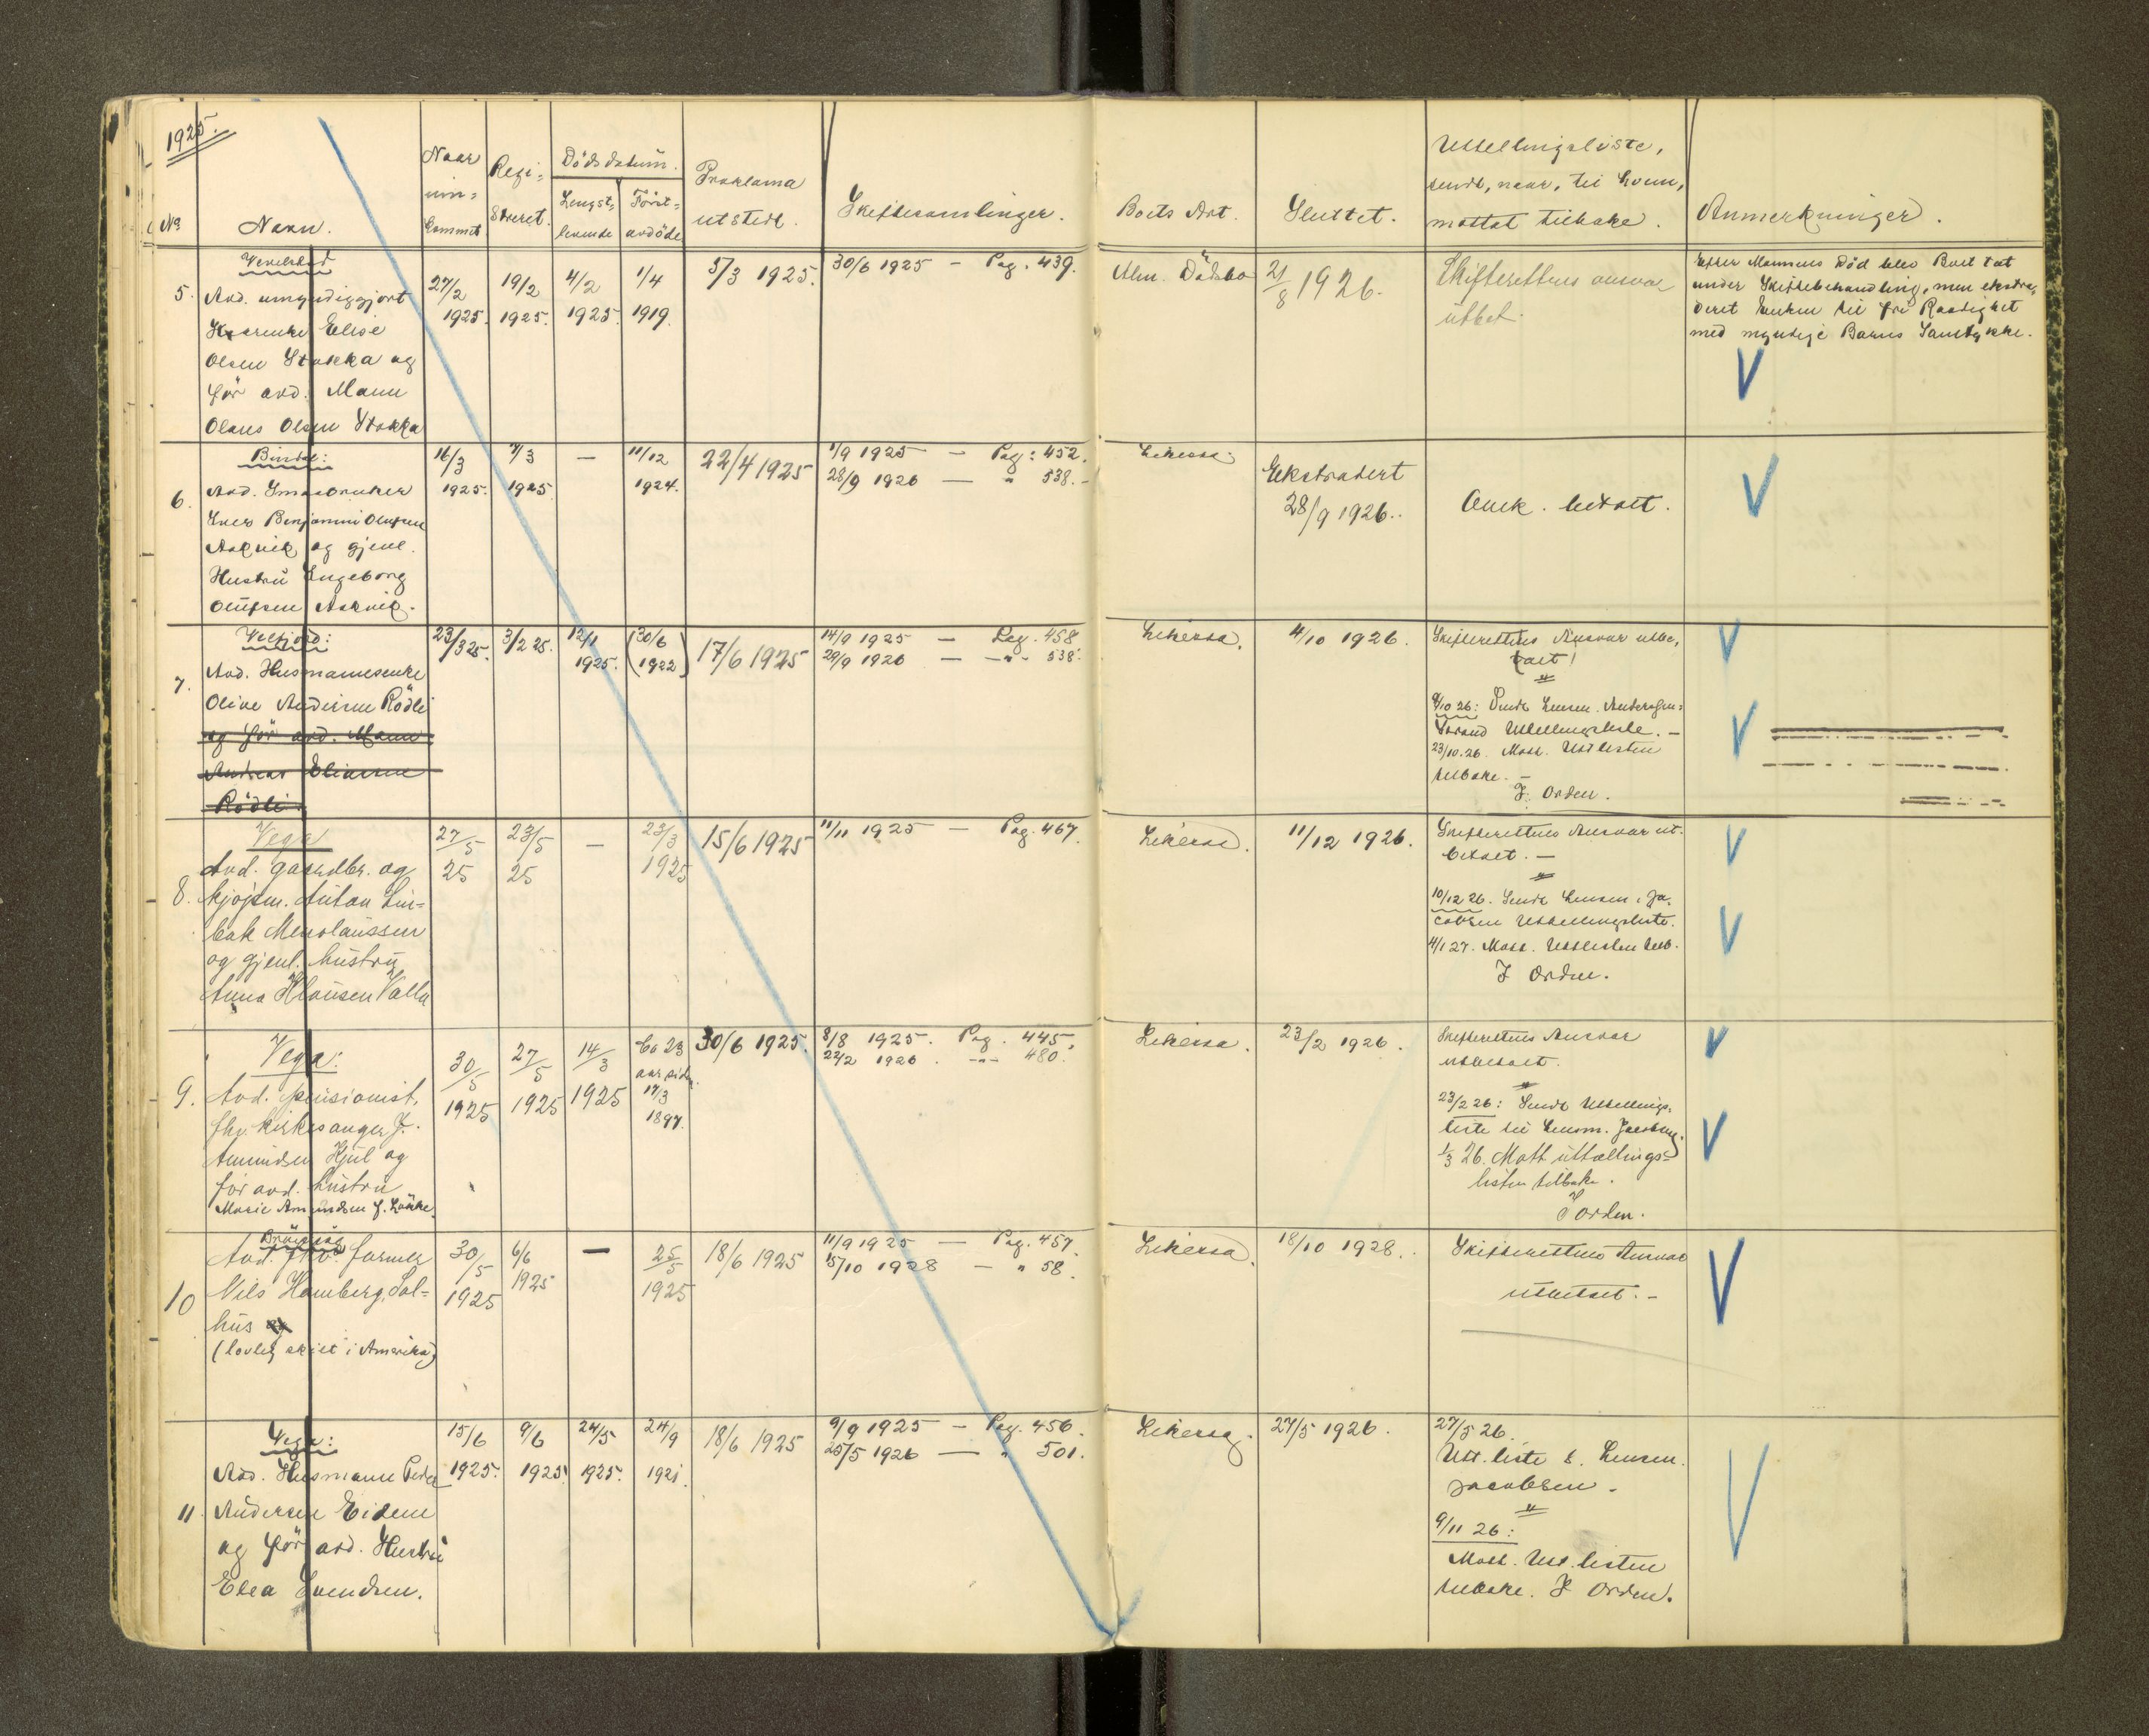 1925.
No
Navn.
Naar
inn-
kommet
Regi-
streret.
Dödsdatum.
Lengst-
levende
Först-
avdöde
Proklama
utstedt.
Skiftesamlinger.
Boets Art.
Sluttet.
Utlællingsliste,
sendt, naar, til hvem,
mottat tilbake.
Anmerkninger.
5.
Avd. umyndiggjort
Elise
Olsen Stokka og
för avd. Mann
Olaus Olsen Stokka
27/2
1925.
19/2
1925.
4/2
1925.
1/4
1919.
5/3 1925.
30/6 1925 - Pag. 439.
Alm. Dödsbo
21/8 1926.
Skifterettens ansvar
utbet.
Efter Mannens Död blev Boet tat
under Skiftebehandling, men ekstra-
deret Enken til fri Raadighet
med myndige Barns Samtykke.
6.
Bindal:
Avd. Smaabruker
Benjamin Olufsen
Aakvik og gjenl.
Hustru Ingeborg
Olufsen Aakvik.
16/3
1925.
7/3
1925.
—
11/12
1924.
22/4 1925
1/9 1925 — Pag: 452.
28/9 1926 — " 538.-
Likesaa.
Ekstradert
28/9 1926.
betalt.
7.
Velfjord:
Avd. Husmannsenke
Olive Andersen Rödli
og för avd. Mann
Andreas Eliassen
Rödli
23/3 25.
3/2 25.
12/1
1925.
(30/6
1922)
17/6 1925
14/9 1925 — Pag. 458
29/9 1926 — -"- 538.
Likesaa.
4/10 1926.
Skifterettens Ansvar utbe-
talt!
9/10 26: Sendt Lensm.
Utlællingsliste. -
23/10.26. Mott. Utl.listen
tilbake. -
I Orden.
8.
Vega
Avd. gaardbr. og
kjøpm. Anton Lin-
bak Menolaussen
og gjenl. hustru
Anna Klausen Valla
27/5
25
23/5
25
—
23/3
1925
15/6 1925
11/11 1925 — Pag. 467.
Likesaa.
11/12 1926.
Skifterettens Ansvar ut-
betalt. -
10/12 26. Sendt Lensm. Ja-
cobsen Utlællingsliste.
4/1 27. Mott. Utl.listen tilb.
I Orden.
9.
Vega:
Avd. pensionist,
fhv. kirkesanger J.
Amundsen Hjul og
før avd. hustru
Marie Amundsen f.
30/5
1925
27/5
1925
14/3
1925
Ca 23
aar siden
17/3
1897.
30/6 1925.
8/8 1925. Pag. 445.
22/2 1926. -"- 480.
Likesaa.
23/2 1926.
Skifterettens Ansvar
utbetalt.
23/2 26: Sendt Utlællings-
liste til Lensm. Jacobsen.
1/3 26. Mott utlællings-
listen tilbake.
I orden.
10
Brönnöy
Avd. fhv. farmer
Nils Hamberg, Sal-
hus og
(lovlig skilt i Amerika)
30/5
1925
6/6
1925
—
25/5
1925
18/6 1925
11/9 1925 — Pag. 457.
15/10 1928 — " 58.
Likesaa.
18/10 1928.
Skifterettens Ansvar
utbetalt. -
11.
Vega:
Avd. Husmann Peder
Andersen Eidem
og för avd. Hustru
Elea Svendsen.
15/6
1925.
9/6
1925
24/5
1925.
24/9
1921.
18/6 1925
9/9 1925 — Pag. 456.
25/5 1926 — " 501.
Likesaa.
27/5 1926.
27/5 26.
Utl. liste s. Lensm.
Jacobsen.
9/11 26:
Mott. Utl. listen
tilbake. I Orden.